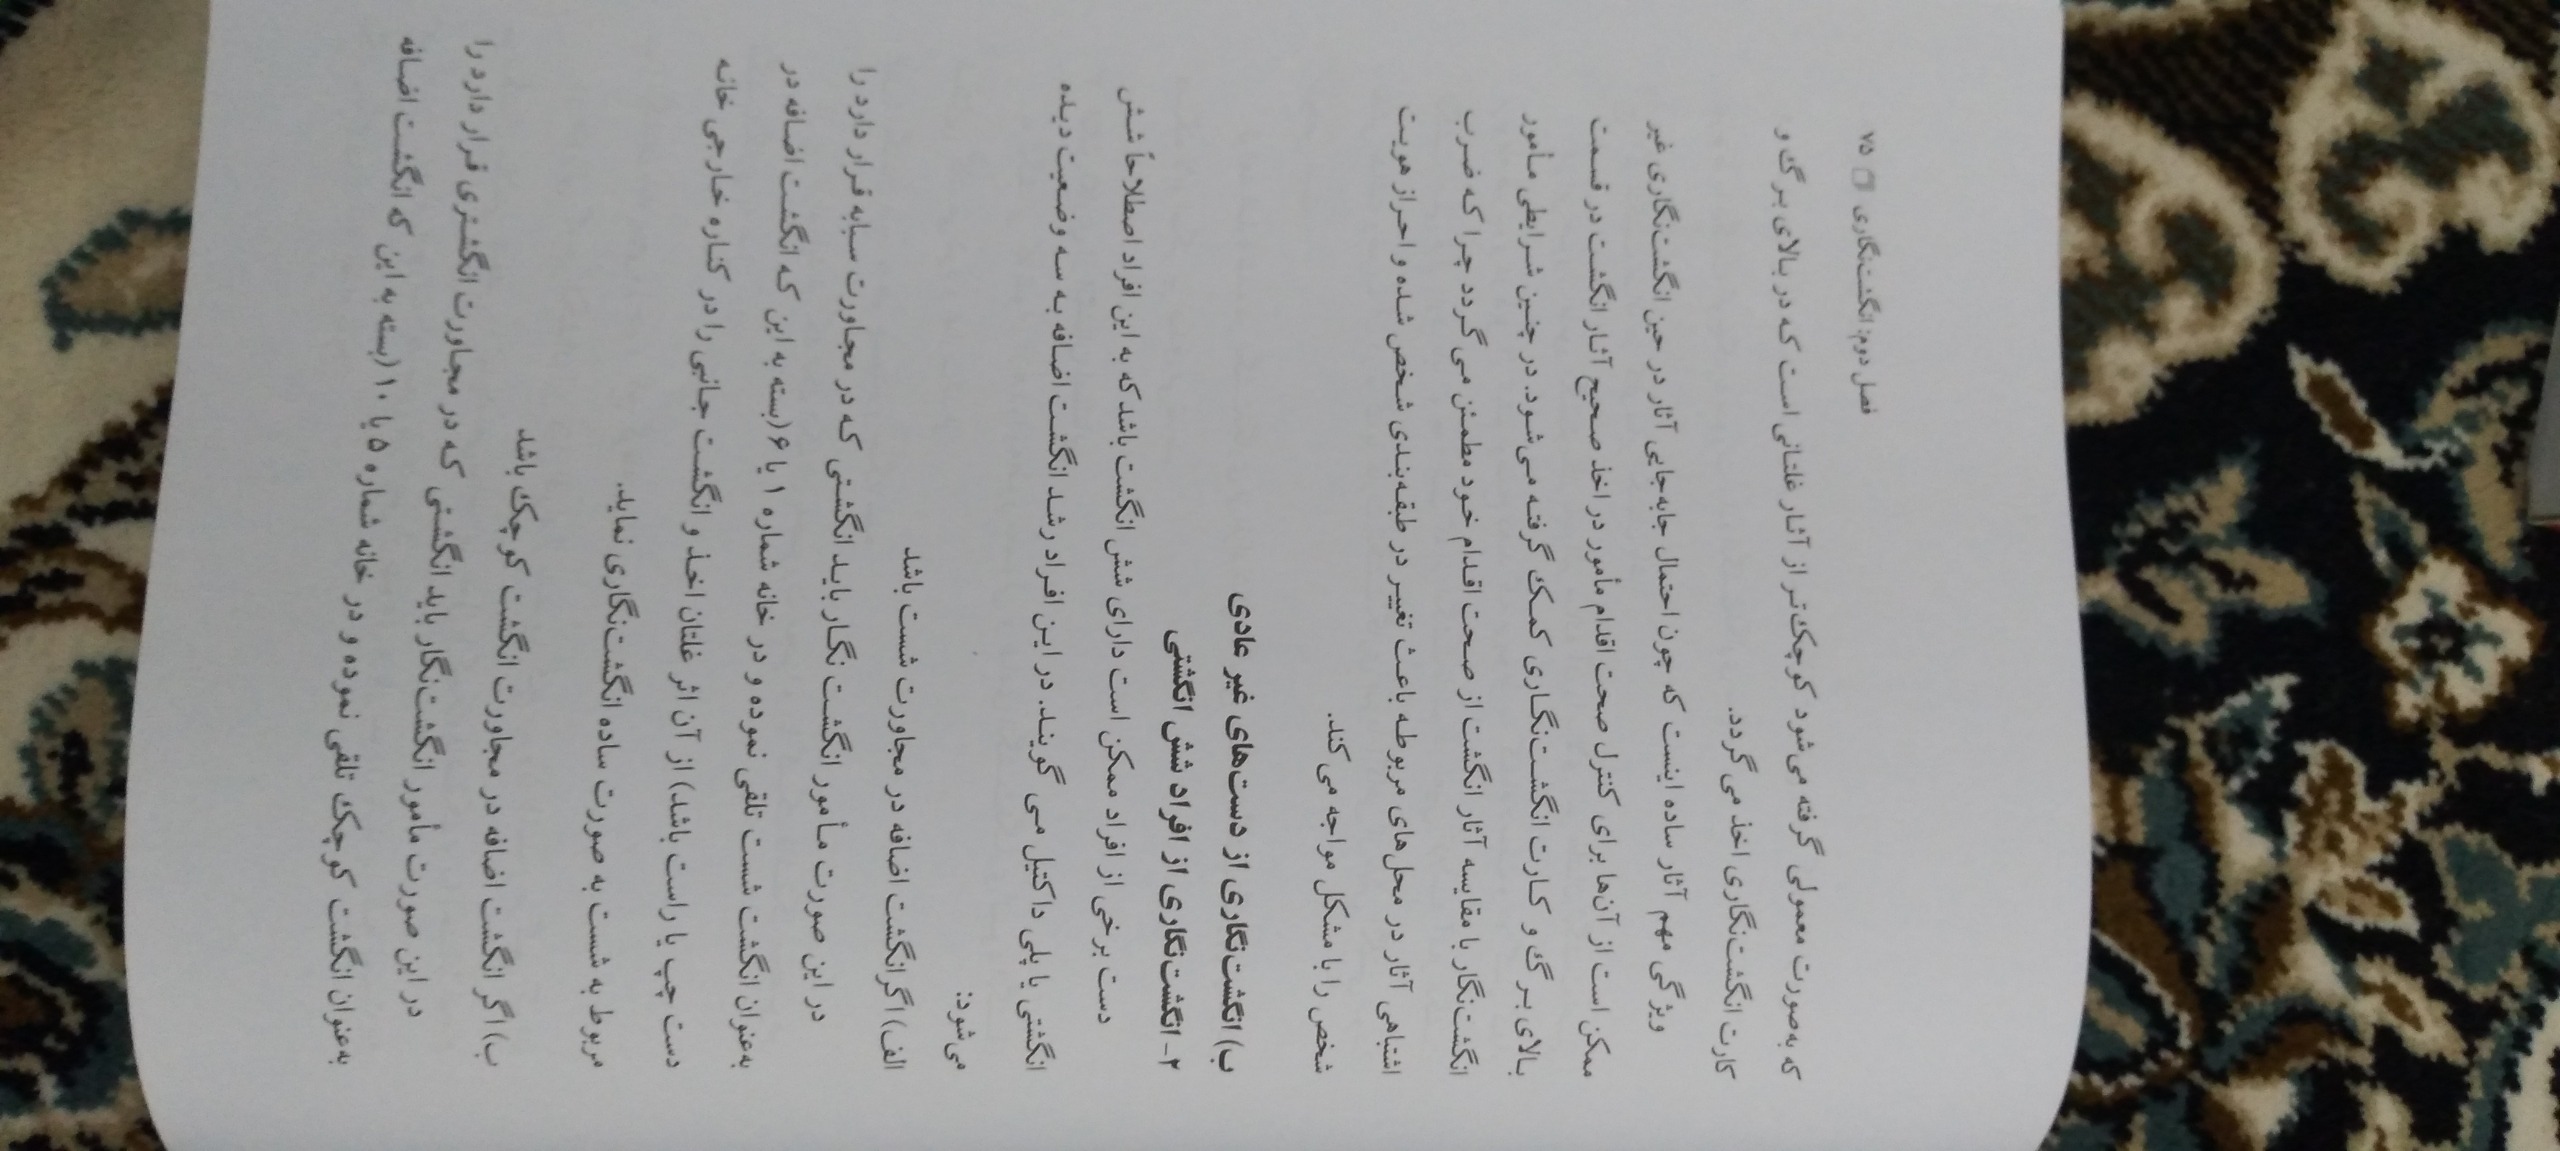 فصل دوم: انگشت‌نگاری ❐ ۷۵
که به‌صورت معمولی گرفته می‌شود کوچک‌تر از آثار غلتانی است که در بالای برگ و
کارت انگشت‌نگاری اخذ می گردد.
ویژگی مهم آثار ساده اینست که چون احتمال جابه‌جایی آثار در حین انگشت‌نگاری غیر
ممکن است از آن‌ها برای کنترل صحت اقدام مأمور در اخذ صحیح آثار انگشت در قسمت
بالای برگ و کارت انگشت‌نگاری کمک گرفته می‌شود. در چنین شرایطی مأمور
انگشت‌نگار با مقایسه آثار انگشت از صحت اقدام خود مطمئن می گردد چرا که ضرب
اشتباهی آثار در محل‌های مربوطه باعث تغییر در طبقه‌بندی شخص شده و احراز هویت
شخص را با مشکل مواجه می کند.
ب) انگشت‌نگاری از دست‌های غیر عادی
۲- انگشت‌نگاری از افراد شش انگشتی
دست برخی از افراد ممکن است دارای شش انگشت باشد که به این افراد اصطلاحاً شش
انگشتی یا پلی داکتیل می گویند. در این افراد رشد انگشت اضافه به سه وضعیت دیده
می‌شود:
الف) اگر انگشت اضافه در مجاورت شست باشد
در این صورت مأمور انگشت نگار باید انگشتی که در مجاورت سبابه قرار دارد را
به‌عنوان انگشت شست تلقی نموده و در خانه شماره ۱ یا ۶ (بسته به این که انگشت اضافه در
دست چپ یا راست باشد) از آن اثر غلتان اخذ و انگشت جانبی را در کناره خارجی خانه
مربوط به شست به صورت ساده انگشت‌نگاری نماید.
ب) اگر انگشت اضافه در مجاورت انگشت کوچک باشد
در این صورت مأمور انگشت‌نگار باید انگشتی که در مجاورت انگشتری قرار دارد را
به‌عنوان انگشت کوچک تلقی نموده و در خانه شماره ۵ یا ۱۰ (بسته به این که انگشت اضافه